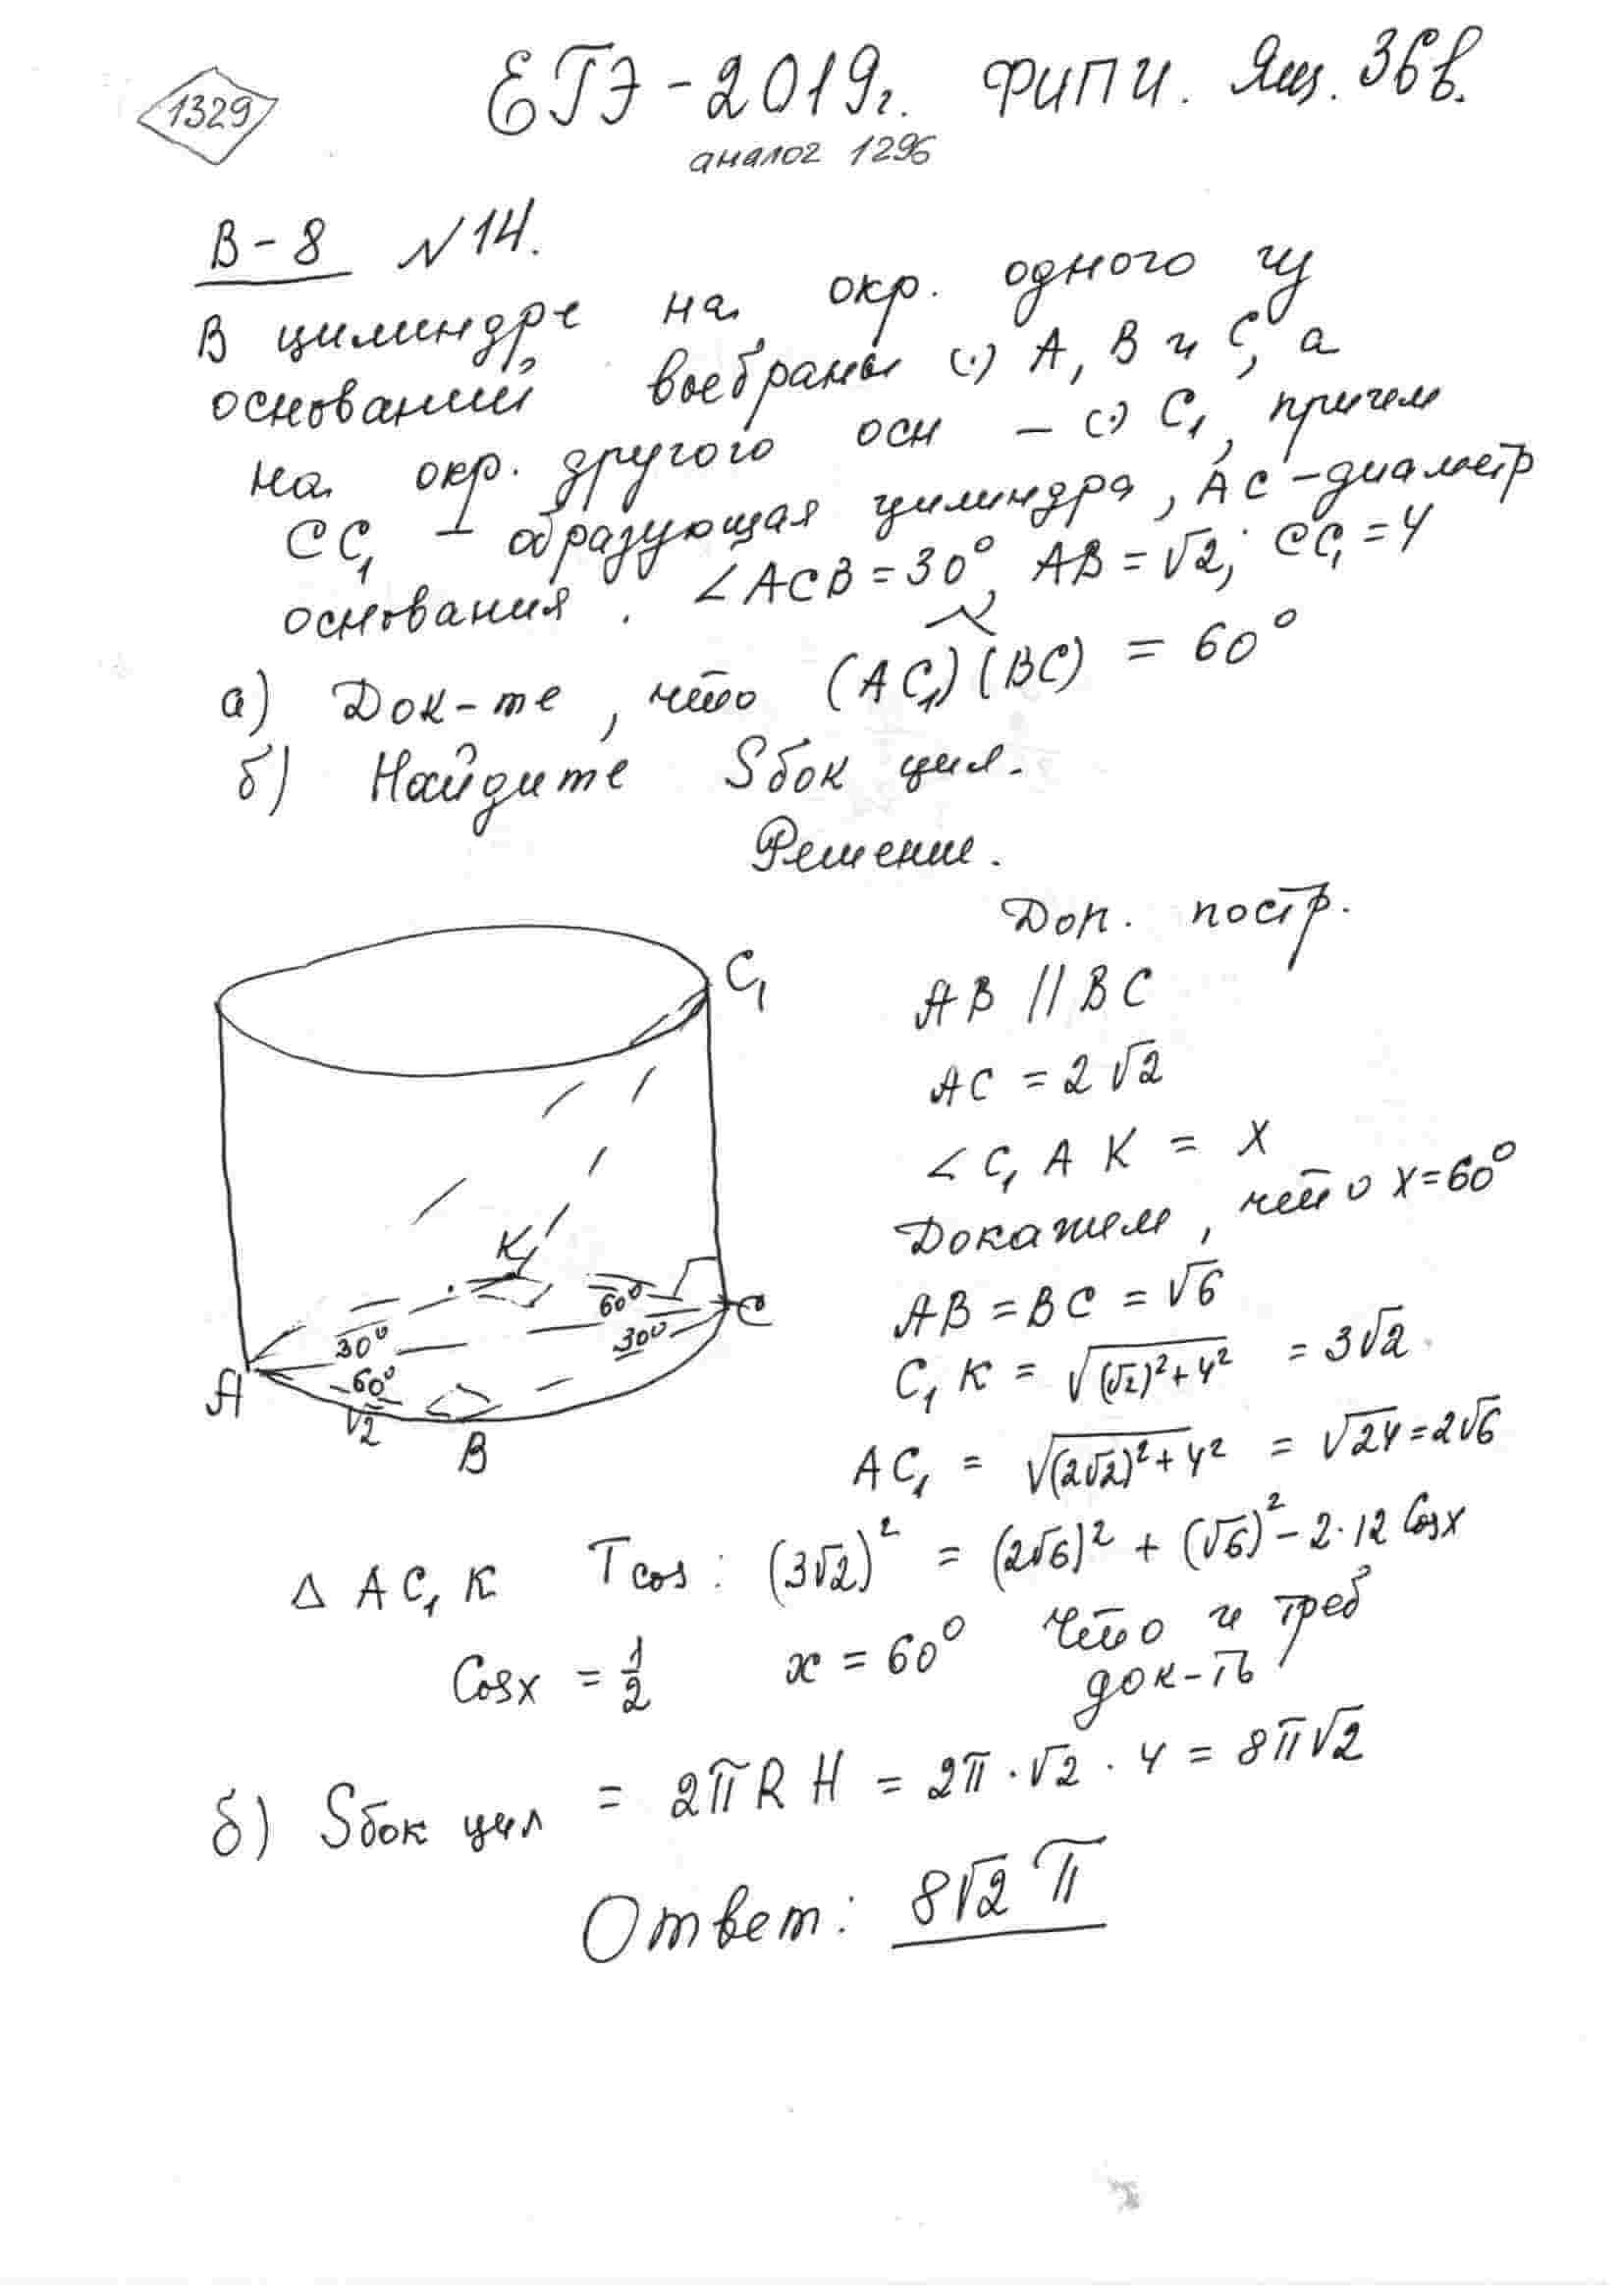 1329
ЕГЭ-2019г. ФИПИ. Ящ. 36в.
аналог 1296
В-8 №14.
В цилиндре на окр. одного из
оснований выбраны (·) A, B и C, а
на окр. другого осн – (·) C₁, причем
CC₁ – образующая цилиндра, AC – диаметр
основания. ∠ACB = 30°, AB = √2; CC₁ = 4
а) Док-те, что (AC₁)(BC) = 60°
б) Найдите Sбок цил.
Решение.
Доп. постр.
AB // BC
AC = 2√2
∠C₁AK = X
Докажем, что x = 60°
AB = BC = √6
C₁K = √((√2)²+4²) = 3√2
AC₁ = √((2√2)²+4²) = √24 = 2√6
△ AC₁K Tcos: (3√2)² = (2√6)² + (√6)² – 2·12 Cosx
Cosx = 1/2 x = 60° Что и треб
док-ть
б) Sбок цил = 2πRH = 2π·√2·4 = 8π√2
Ответ: 8√2 π
C₁
K
60°
C
30°
30°
A
60°
√2
B